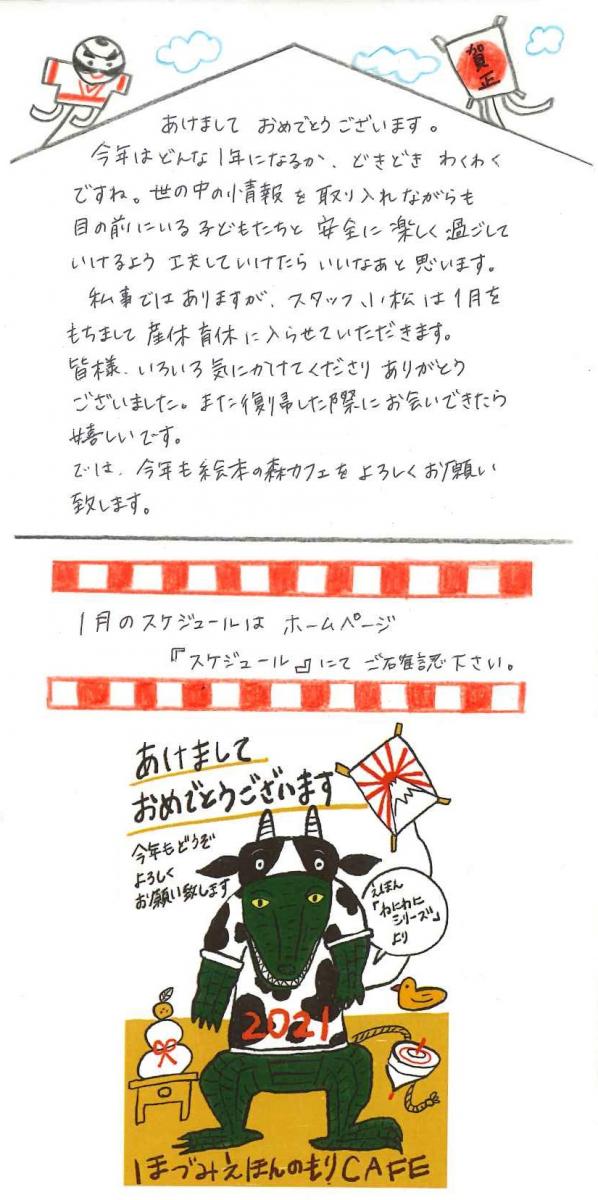 賀正
あけまして おめでとうございます。
今年はどんな1年になるか、どきどき わくわく
ですね。世の中の情報を取り入れながらも
目の前にいる子どもたちと 安全に楽しく過ごして
いけるよう 工夫していけたら いいなあと思います。
私事ではありますが、スタッフ小松は1月を
もちまして 産休育休に入らせていただきます。
皆様、いろいろ気にかけてくださり ありがとう
ございました。また復帰した際にお会いできたら
嬉しいです。
では、今年も絵本の森カフェをよろしくお願い
致します。
1月のスケジュールは ホームページ
『スケジュール』にて ご確認下さい。
あけまして
おめでとうございます
今年もどうぞ
よろしく
お願い致します
えほん
「わにわに
シリーズ」
より
2021
ほづみえほんのもりCAFE